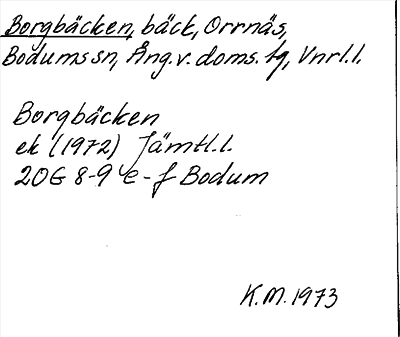 Borgbäcken, bäck, Orrnäs,
Bodums sn, Ång. v. doms. tg, Vnrl. l.
Borgbäcken
ek (1972) Jämtl. l.
20G 8-9 e-f Bodum
K.M. 1973